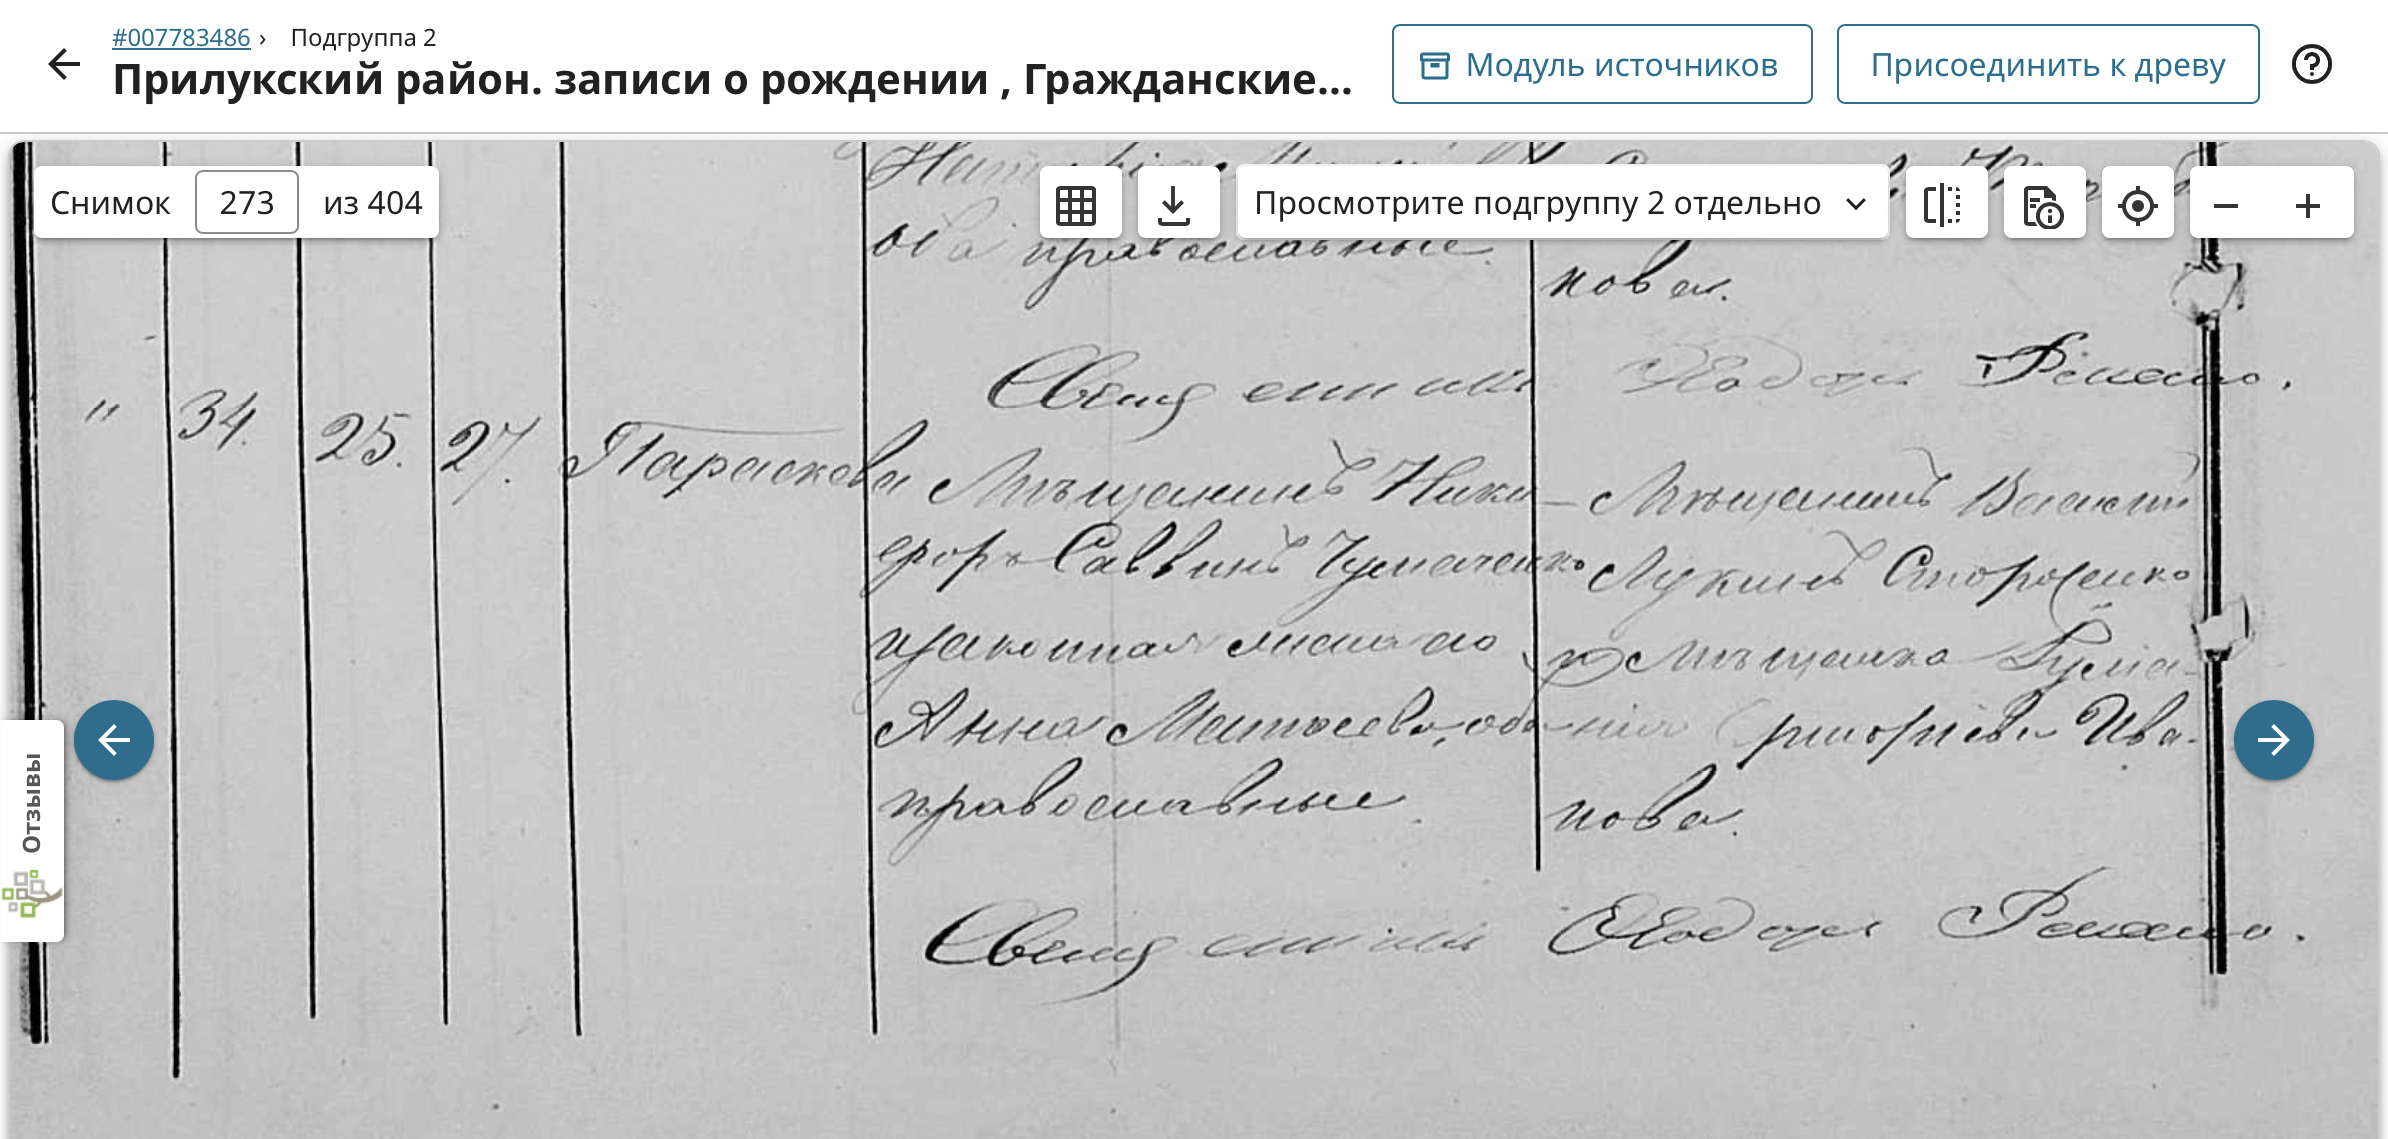 #007783486 › Подгруппа 2
Прилукский район. записи о рождении , Гражданские...
Модуль источников
Присоединить к древу
Снимок 273 из 404
Просмотрите подгруппу 2 отдельно
оба православные.
нова.
Священникъ
" 34. 25. 27. Параскева
Мѣщанинъ Ники-
форъ Саввинъ Чумаченко
и законная жена его
Анна Матѳеева, оба
православные.
Мѣщанинъ Василій
Лукинъ Стороженко
и Мѣщанка Еѵѳи-
мія Григорьева Ива-
нова.
Священникъ
Отзывы